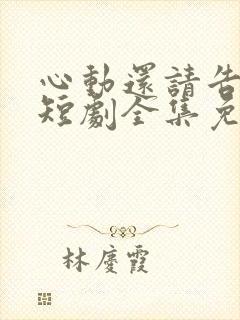 心動還請告
短劇全集免
林慶霞